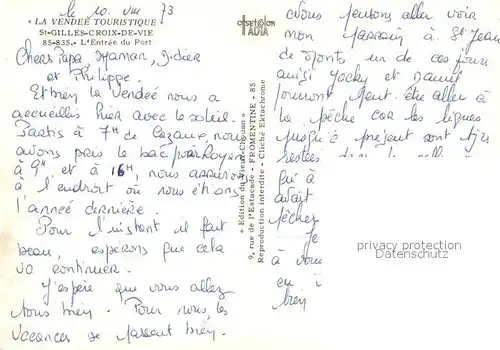 le 10. VIII 73
« LA VENDÉE TOURISTIQUE
St-GILLES-CROIX-DE-VIE
85-835. - L'Entrée du Port
Chers Papa, Maman, Didier
et Philippe.
Et bien la Vendée nous a
accueillis hier avec le soleil.
Partis à 7H de Cazaux, nous
avons pris le bac pour Royan
à 9H et à 16H, nous arrivions
à l'endroit où nous étions
l'année dernière.
Pour l'instant il fait
beau, espérons que cela
va continuer.
J'espère que vous allez
tous bien. Pour nous, les
vacances se passent bien.
« Edition du Vieux-Chouan »
9, rue de l'Estacade - FROMENTINE - 85
Reproduction interdite - Cliché Ektachrome
Nous pensons aller voir
mon parrain à St Jean
de Monts un de ces jours
ainsi Jacky et Daniel
pourront peut-être aller à
la pêche car les lignes
jusqu'à présent sont
restées dans
à
avait
pêcher
Je
à vous
en
bien
privacy protection
Datenschutz